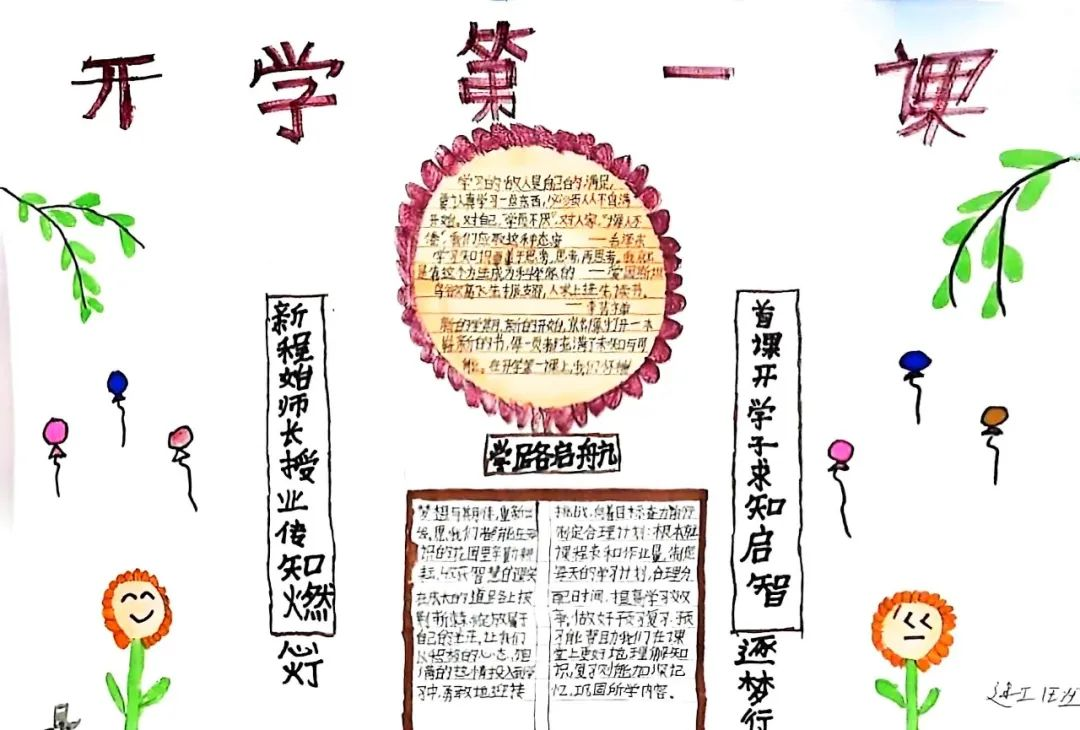 开学第一课
学习的敌人是自己的满足,
要认真学习一点东西,必须从不自满
开始。对自己,“学而不厌”,对人家,“诲人不
倦”,我们应取这种态度 ——毛泽东
学习知识要善于思考,思考,再思考。我就
是靠这个方法成为科学家的 ——爱因斯坦
鸟欲高飞先振翅,人求上进先读书。
——李苦禅
新的学期,新的开始,就像打开一本
崭新的书,每一页都充满了未知与可
能。在开学第一课上,我们怀揣
新程始师长授业传知燃
心灯
首课开学子求知启智
逐梦行
学路启航
梦想与期待,重新出
发,愿我们都能在知
识的花园里辛勤耕
耘,收获智慧的硕果
在成长的道路上披
荆斩棘,绽放属于
自己的光芒,让我们
以积极的心态,饱
满的热情投入到学
习中,勇敢地迎接
挑战,向着目标奋力前行
制定合理计划:根据
课程表和作业量,制定
每天的学习计划,合理分
配时间,提高学习效
率,做好预习复习,预
习能帮助我们在课
堂上更好地理解知
识,复习则能加深记
忆,巩固所学内容。